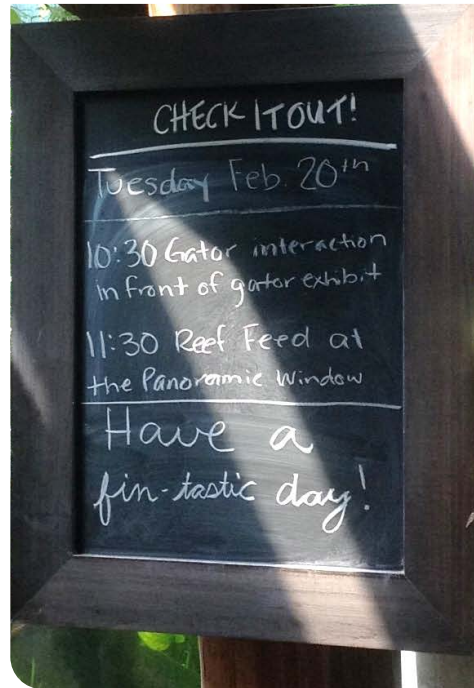 CHECK IT OUT!
Tuesday Feb. 20th
10:30 Gator interaction
in front of gator exhibit
11:30 Reef Feed at
the Panoramic Window
Have a
fin-tastic day!